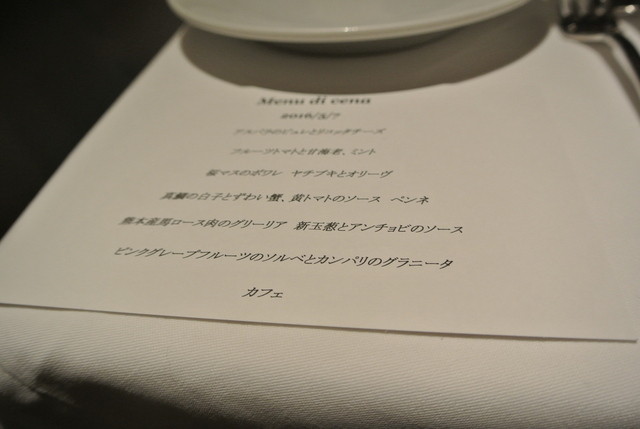 Menu di cena
2016/5/7
アスパラのピュレとリコッタチーズ
フルーツトマトと甘海老、ミント
桜マスのポワレ　ヤチブキとオリーヴ
真鯛の白子とずわい蟹、黄トマトのソース　ペンネ
熊本産馬ロース肉のグリーリア　新玉葱とアンチョビのソース
ピンクグレープフルーツのソルベとカンパリのグラニータ
カフェ